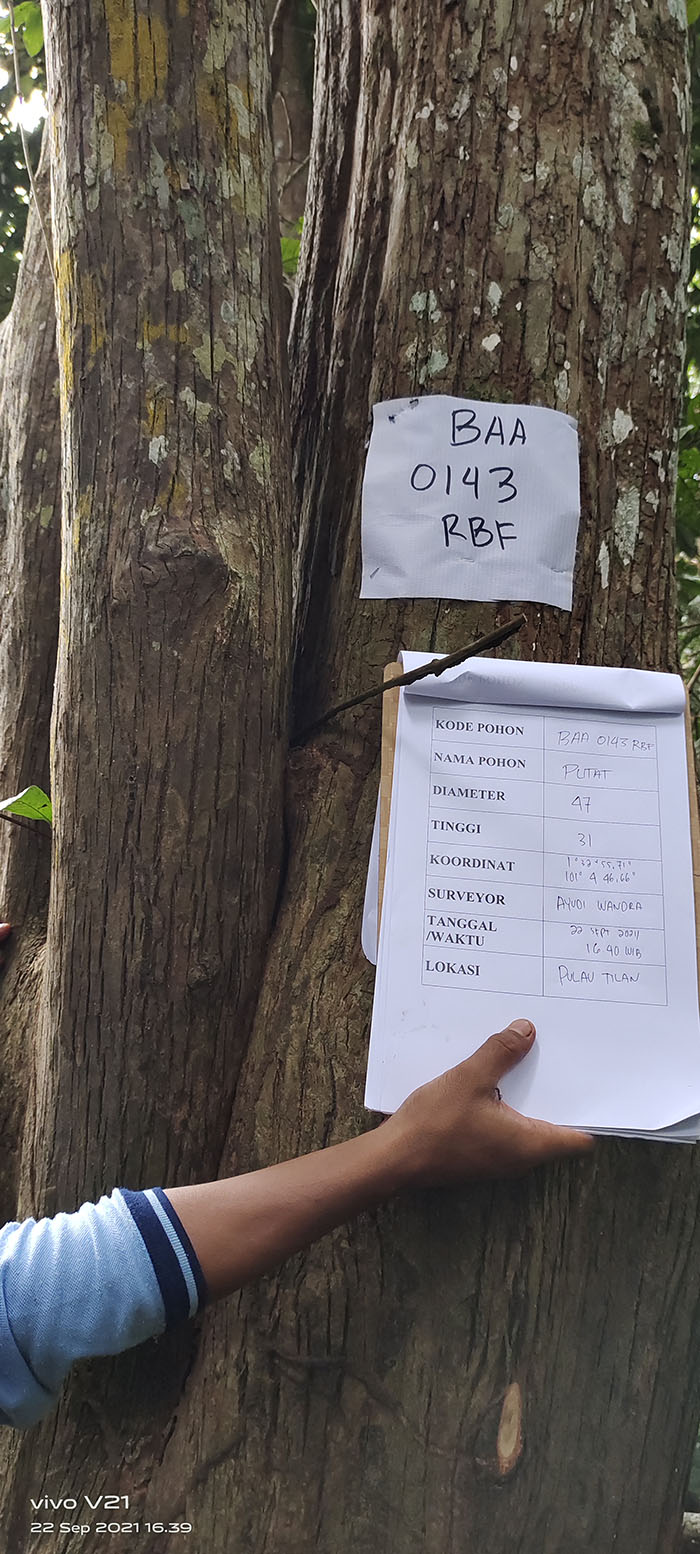 BAA
0143
RBF
KODE POHON BAA 0143 RBF
NAMA POHON PUTAT
DIAMETER 47
TINGGI 31
KOORDINAT
101° 4 46,66"
SURVEYOR AYUDI WANDRA
TANGGAL 22 SEPT 2021
/WAKTU 16 40 WIB
LOKASI PULAU TILAN
vivo V21
22 Sep 2021 16.39